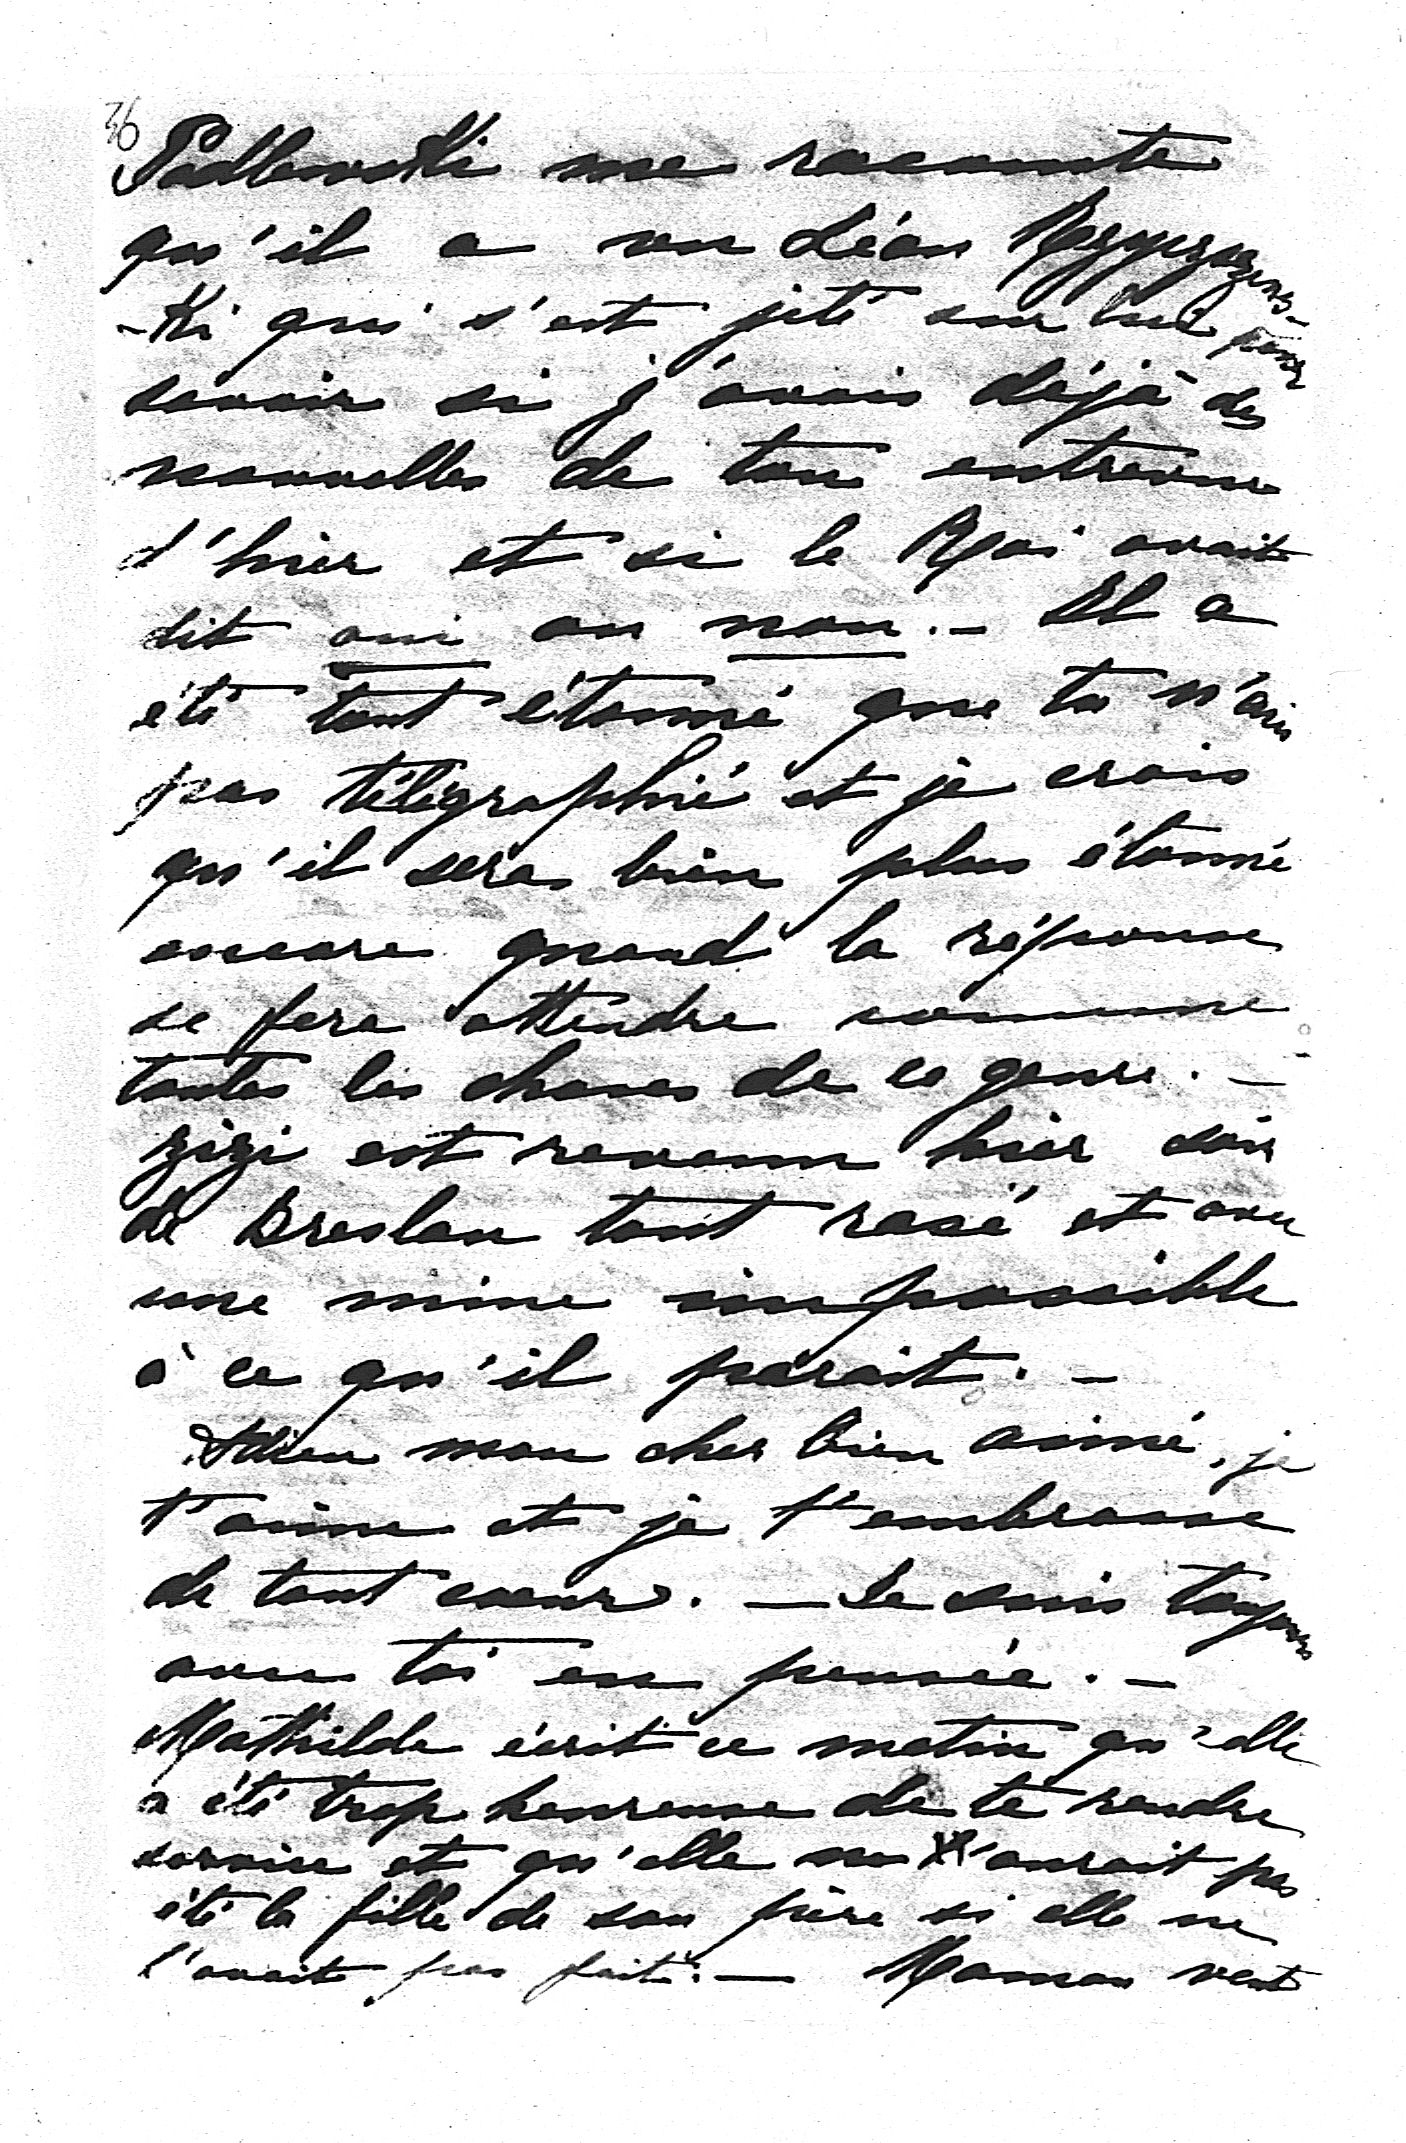 36
Podlewski me raconte
qu'il a vu Léon
-ki qui s'est jeté sur lui pour
savoir si j'avais déjà des
nouvelles de ton entrevue
d'hier et si le Roi avait
dit oui ou non. — Il a
été tout étonné que tu n'ais
pas télégraphié et je crois
qu'il sera bien plus étonné
encore quand la réponse
se fera attendre comme
toutes les choses de ce genre. —
Zizi est revenu hier soir
de Breslau tout rasé et avec
une mine impossible
à ce qu'il parait. —
Adieu mon cher bien aimé, je
t'aime et je t'embrasse
de tout coeur. — Je suis toujours
avec toi en pensée. —
Mathilde écrit ce matin qu'elle
a été trop heureuse de te rendre
service et qu'elle ne l'aurait pas
été la fille de son père si elle ne
l'avait pas fait. — Maman veut